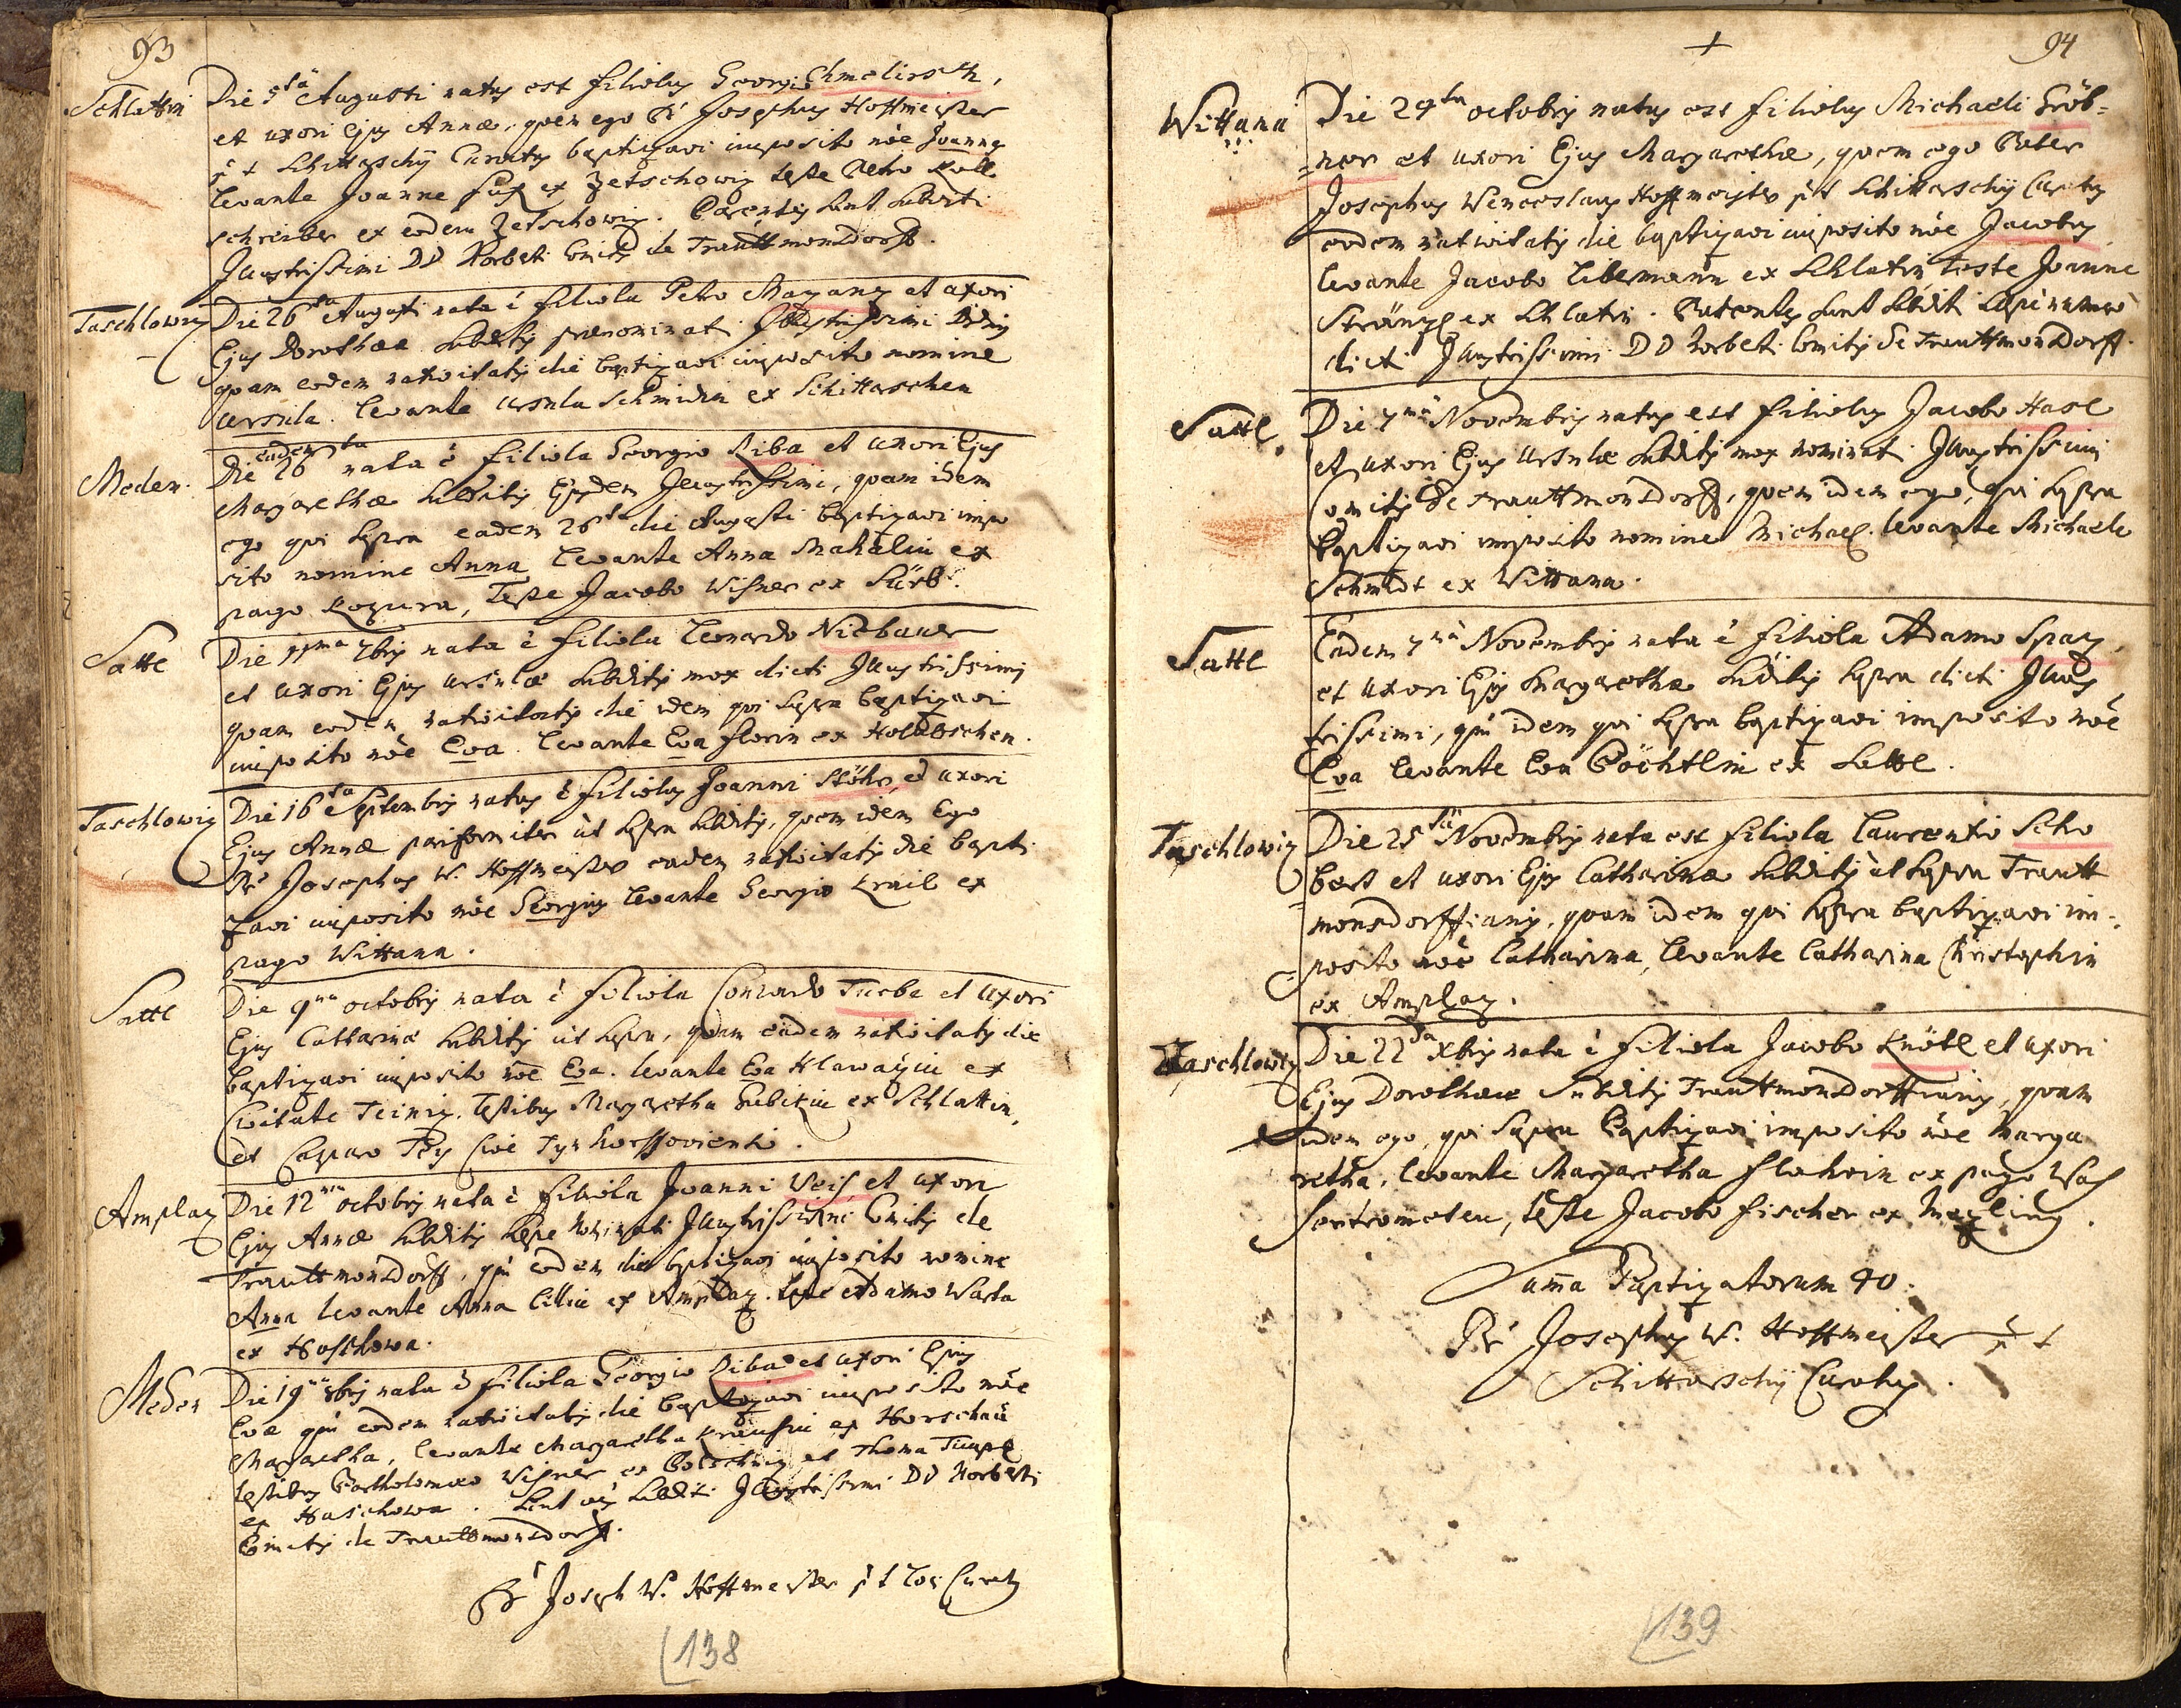 93
Schlattin
Die 5tâ Augusti natus est filiolus Georgio Chmelirsch,
et uxori Ejus Annæ, quem ego Pr Josephus Hoffmeister
p t Schittarschÿ Curatus baptizavi imposito nôe Joannes
levante Joanne ex Zetschowiz teste Petro
schreiber ex eodem Zetschowiz. Parentes sunt subditi
Illustrissimi DD Norberti Comitis de Trauttmonsdorff.
Taschlowiz
Die 26ta Augusti nata ê filiola Petro Mayany et uxori
Ejus Dorotheæ subditis prænominati Illustrissimi
quam eodem nativitatis die baptizavi imposito nomine
Ursula. levante Ursula Schmidin ex Schittarschen
Meden.
Die eadem 26ta nata ê filiola Georgio Riba et uxori Ejus
Margarethæ subditis Ejusdem Illustrissimi, quam idem
ego qui supra eadem 26ta die Augusti baptizavi impo
sito nomine Anna levante Anna Mahalin ex
pago Rozura, Teste Jacobo Wisner ex Sürb.
Sattl
Die 11ma 7bris nata ê filiola Leonardo Niebauer
et uxori Ejus Ursulæ subditis mox dicti Illustrissimi
quam eodem nativitatis die idem qui supra baptizavi
imposito nôe Eva. levante Eva Florin ex Holletschen.
Taschlowiz
Die 16ta Septembris natus ê filiolus Joanni Stöhr, et uxori
Ejus Annæ pariformiter ut supra subditis, quem idem Ego
Pr Josephus W. Hoffmeister eadem nativitatis die bapti
zavi imposito nôe Georgius levante Georgio Krail ex
pago Wittana.
Sattl
Die 9na octobris nata ê filiola Conrado Tuebe et uxori
Ejus Catharinæ subditis ut supra, quam eadem nativitatis die
baptizavi imposito nôe Eva. levante Eva Hlawazin ex
Civitate Teiniz. Testibus Margaretha Subikin ex Schlattin,
et Casparo Cive Tynhorssoviensi.
Amplaz
Die 12ma octobris nata ê filiola Joanni Veis, et uxori
Ejus Annæ subditis sæpe nominati Illustrissimi Comitis de
Trauttmonsdorff, quâ eodem die baptizavi imposito nomine
Anna levante Anna Cillin ex Amplaz. teste Adamo Warta
ex Hoslowa.
Meden
Die 19na 8bris nata ê filiola Georgio Riba et uxori Ejus
Evæ quâ eodem nativitatis die baptizavi imposito nôe
Margaretha, levante Margaretha Krausin ex Horschau
testibus Bartholomæo Wisner ex Potschiz et Thoma Timpl
ex Haschowa. Sunt subditi Illustrissimi DD Norberti
Comitis de Trauttmonsdorff.
Pr Joseph W. Hoffmeister p t loci Curatus
138
+
94
Wittana
Die 29ta octobris natus est filiolus Michaeli Gröb=
=ner et uxori Ejus Margarethæ, quem ego Pater
Josephus Wenceslaus Hoffmeister p t Schittarschÿ Curatus
eodem nativitatis die baptizavi imposito nôe Jacobus
levante Jacobo Libermann ex Schlatin teste Joanne
Stränzl ex Schlatin. Parentes sunt subditi sæpe nomi
dicti Illustrissimi DD Norberti Comitis de Trauttmonsdorff.
Sattl.
Die 7mâ Novembris natus est filiolus Jacobo Hasl
et uxori Ejus Ursulæ subditis mox nominati Illustrissimi
Comitis de Trauttmonsdorff, quem idem ego, qui supra
baptizavi imposito nomine Michael. levante Michaele
Schmidt ex Wittana.
Sattl
Eadem 7mâ Novembris nata ê filiola Adamo Spaz,
et uxori Ejus Margarethæ subditis supra dicti Illus
trissimi, quâ idem qui supra baptizavi imposito nôe
Eva levante Eva Pöchtlin ex Sattl.
Taschlowiz
Die 25tâ Novembris nata est filiola Laurentio Scho
bert et uxori Ejus Catharinæ subditis ut supra Trautt
monsdorffianis, quam idem qui supra baptizavi im=
posito nôe Catharina, levante Catharina Christophin
ex Amplaz.
Taschlowiz
Die 22da Xbris nata ê filiola Jacobo Knötl et uxori
Ejus Dorotheæ subditis Trauttmonsdorffianis, quam
idem ego, qui supra baptizavi imposito nôe Marga
retha, levante Margaretha Flohrin ex pago Was
sertrometen, teste Jacobo Fischer ex Mezling.
Suma Baptizatorum 40.
Pr Josephus W. Hoffmeister p t
Schittarschÿ Curatus.
139